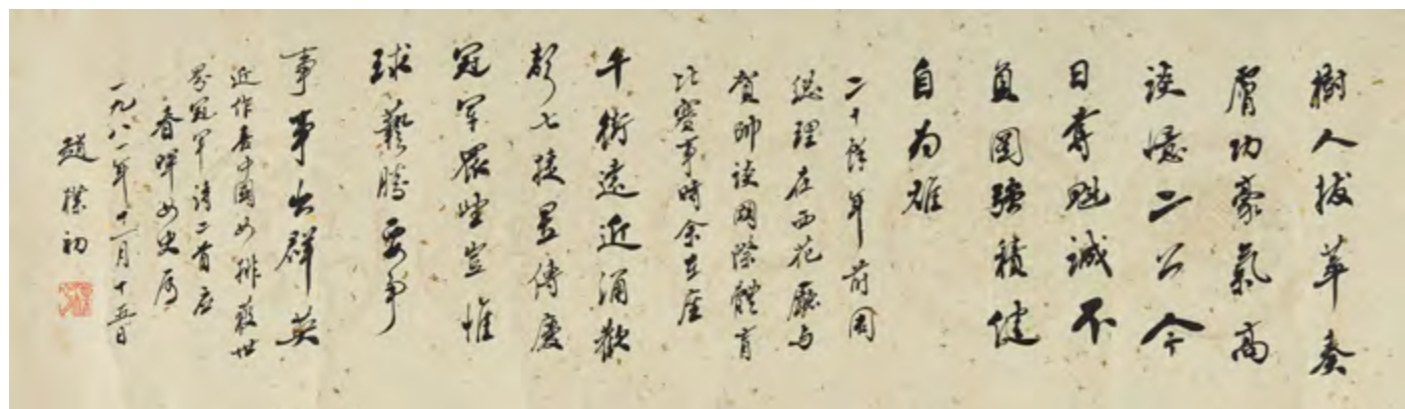 樹人拔萃奏
膚功豪氣高
談憶二公今
日奪魁誠不
負圖強積健
自为雄
二十餘年前周
總理在西花廳与
賀帥談國際體育
比賽事時余在座
千街遠近涌歡
聲七捷星傳慶
冠軍眾望豈惟
球藝勝要爭
事事出群英
近作喜中國女排獲世
界冠軍詩二首应
香畔女史屬
一九八一年十二月十五日
趙樸初